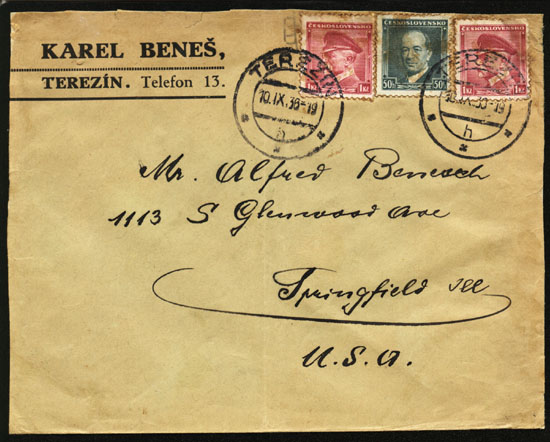 KAREL BENEŠ,
TEREZÍN. Telefon 13.
ČESKOSLOVENSKO
1Kč
ČESKOSLOVENSKO
50h 50h
ČESKOSLOVENSKO
1Kč 1Kč
TEREZÍN
10.IX.36-19
h
TEREZÍN
10.IX.36-19
h
Mr. Alfred Benesch
1113 S Glenwood Ave
Springfield Ill
U.S.A.